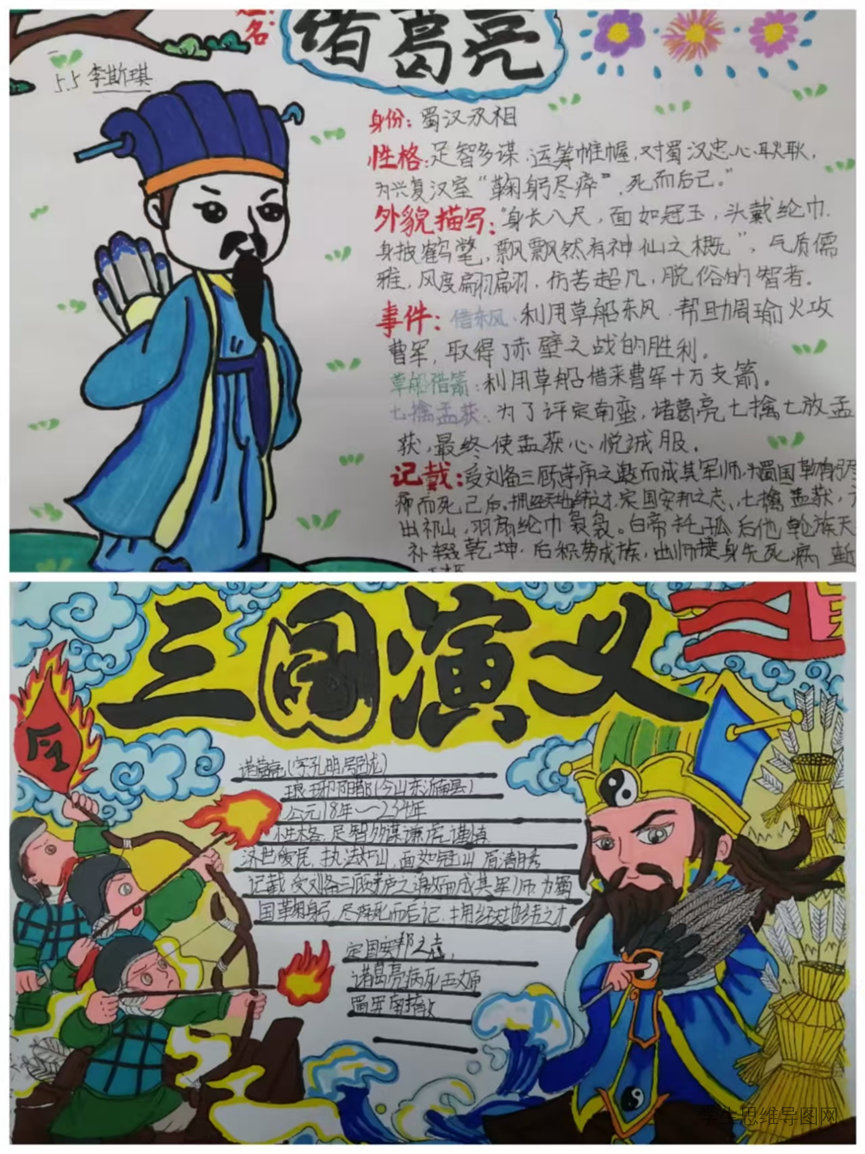 姓名:
诸葛亮
5.5 李斯琪
身份: 蜀汉丞相
性格: 足智多谋、运筹帷幄,对蜀汉忠心耿耿,
为兴复汉室“鞠躬尽瘁”,死而后已。”
外貌描写:“身长八尺,面如冠玉,头戴纶巾,
身披鹤氅,飘飘然有神仙之概”,气质儒
雅,风度翩翩,伤苦超凡,脱俗的智者。
事件: 借东风:利用草船东风,帮助周瑜火攻
曹军,取得了赤壁之战的胜利。
草船借箭:利用草船借来曹军十万支箭。
七擒孟获:为了评定南蛮,诸葛亮七擒七放孟
获,最终使孟获心悦诚服。
记载:受刘备三顾茅庐之邀而成其军师,为蜀国
而死己后,拥经天地纬之才,定国安邦之志,七擒孟获,
出祁山,羽扇纶巾袅袅。白帝托孤后他
补缀乾坤,后积劳成疾,出师捷身先死病
三国演义
令
诸葛亮(字孔明号卧龙)
琅琊阳都(今山东沂南县)
公元18年——234年
性格 足智多谋 谨慎
执法 面如冠 眉清
记载 受刘备三顾茅庐之邀而成其军师 为蜀
国鞠躬 尽瘁死而后记,拥经天地纬之才
定国安邦之志,
诸葛亮病死五丈原
蜀军
学生思维导图网